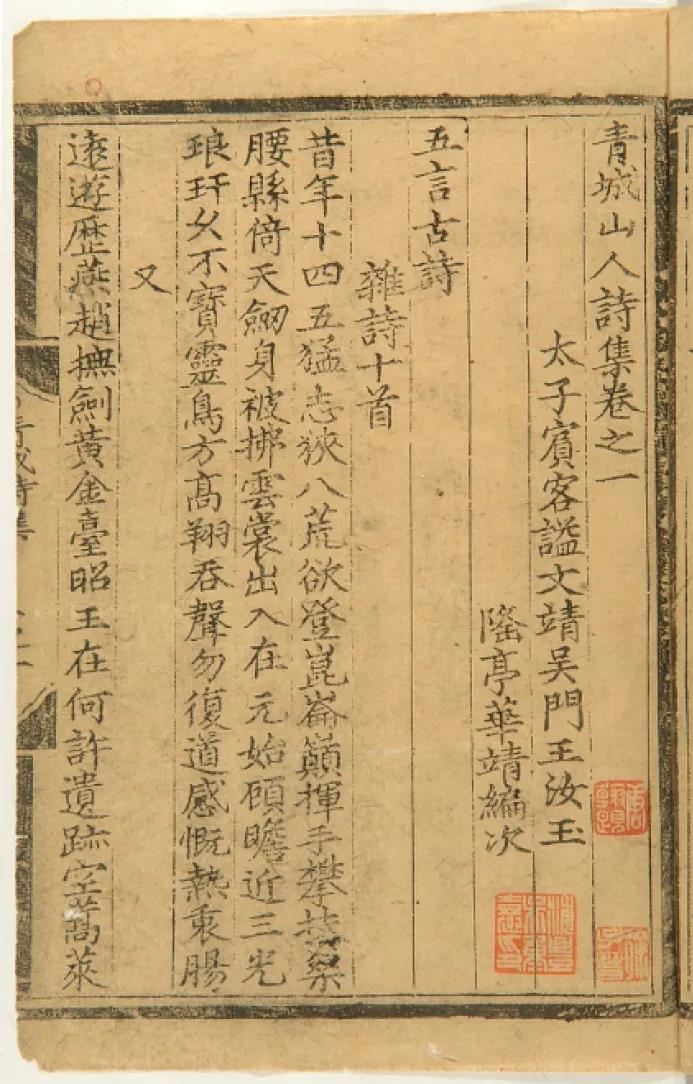 青城山人詩集卷之一
太子賓客謚文靖吳門王汝玉
隆亭華靖編次
五言古詩
雜詩十首
昔年十四五猛志狹八荒欲登崑崙巔揮手攀扶桑
腰縣倚天劒身被拂雲裳出入在元始頋瞻近三光
琅玕久不寶靈鳥方髙翔吞聲勿復道感慨熱衷腸
又
遠遊歷燕趙撫劍黃金臺昭王在何許遺跡空蒿萊